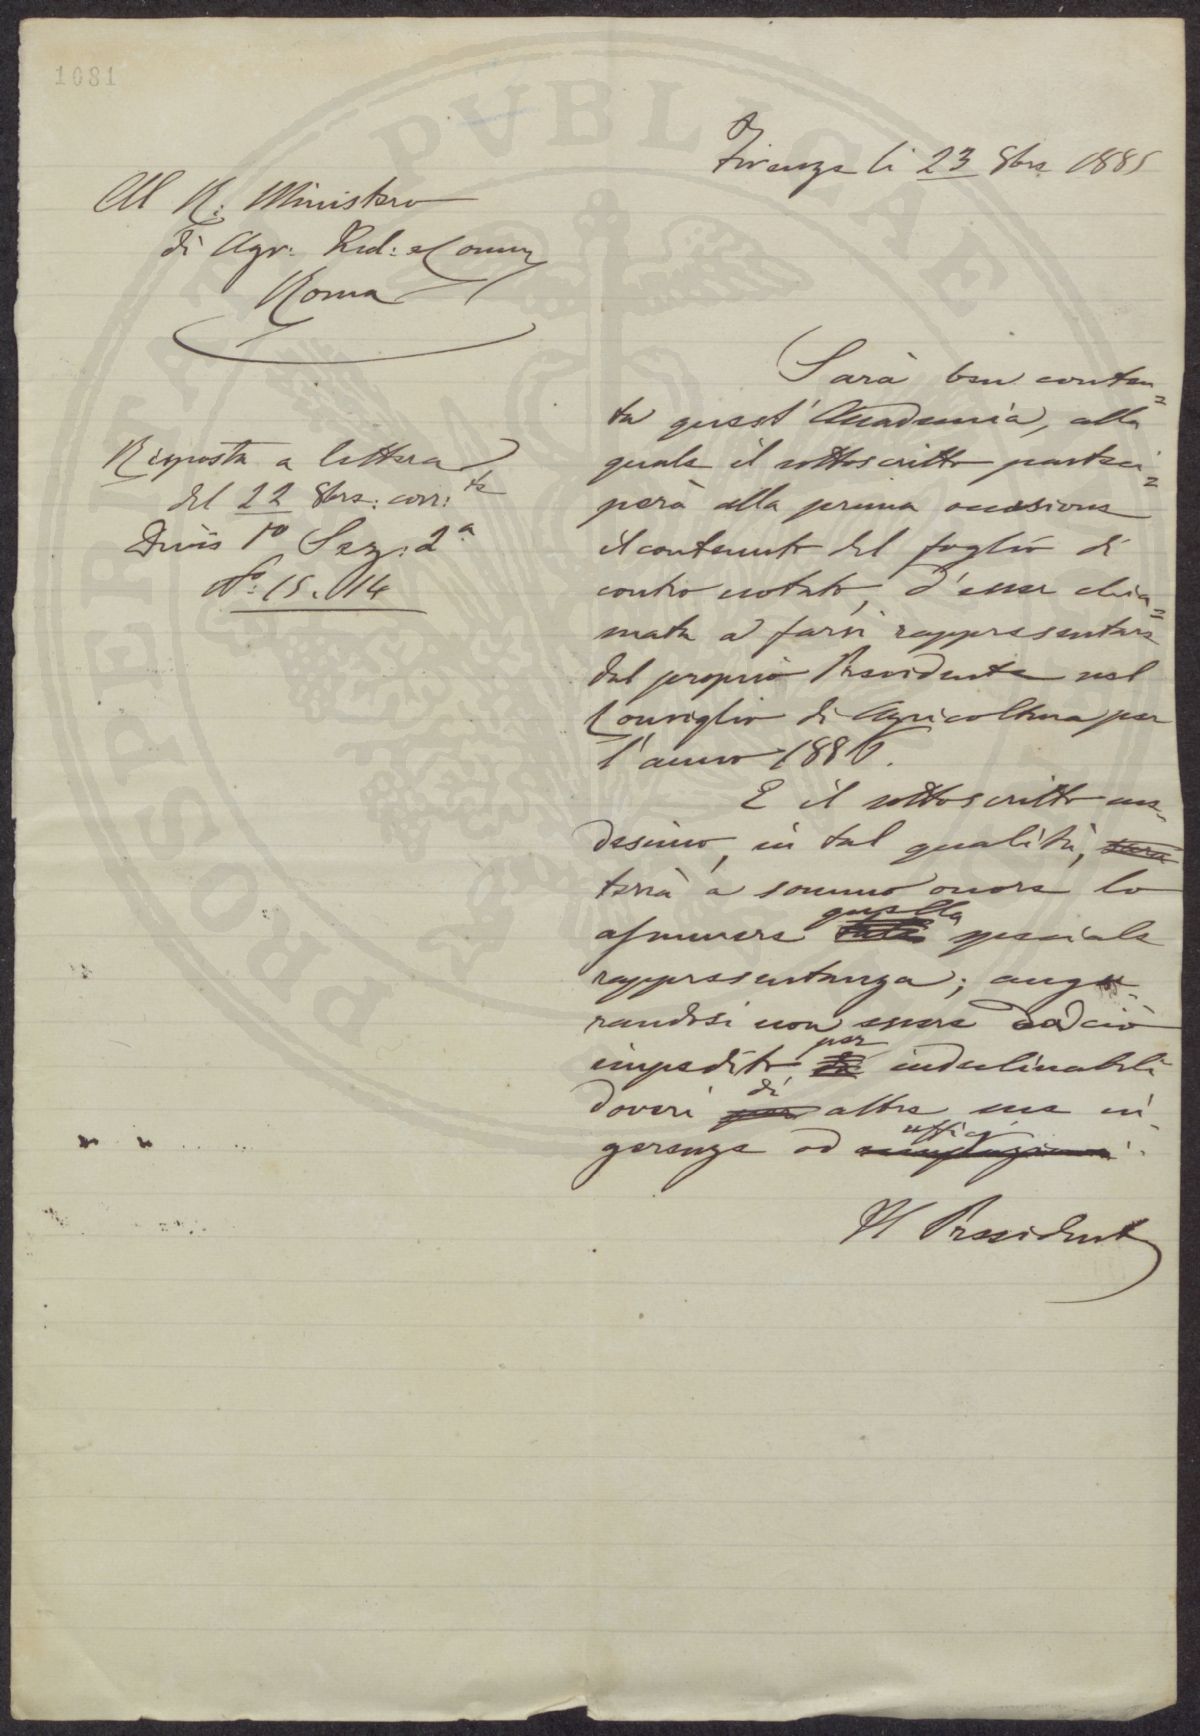 1081
Firenze li 23 8bre 1885
Al R: Ministero
di Agr: Ind: e Comm
Roma
Risposta a lettera
del 22 8bre: corr:te
Divis 1a Sez: 2a
No: 15.014
Sarà ben conten=
ta quest'Accademia, alla
quale il sottoscritto parteci=
perà alla prima occasione
il contenuto del foglio di
contro notato, d'esser chia=
mata a farsi rappresentare
dal proprio Presidente nel
Consiglio di Agricoltura per
l'anno 1886.
E il sottoscritto me-
desimo, in tal qualità, sarà
terrà a sommo onore lo
assumere tale quella speciale
rappresentanza; augu-
randosi non essere da ciò
impedito da per indeclinabili
doveri per di altre sue in-
gerenze od uffici.
Il Presidente
PROSPERITATI PVBLICAE